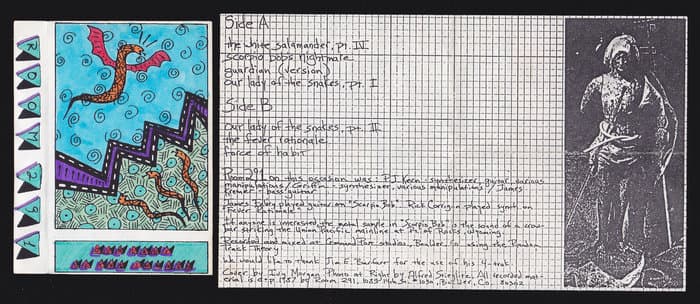 ROOM 291
Side A
the white salamander, pt. IV
scorpio bobs nightmare
guardian (version)
our lady of the snakes, pt. I
Side B
our lady of the snakes, pt. II
the fever rationale
force of habit
Room 291 on this occasion was: P.J. Kern - synthesizer, guitar, various
manipulations/ Griffin - synthesizer, various manipulations/ James
bass guitar
James played guitar on "Scorpio Bob". Rick Corrigan played synth. on
"Fever Rationale".
If anyone is interested, the metal sample in "Scorpio Bob" is the sound of a crow-
bar striking the Union Pacific mainline at Pine Bluffs, Wyoming.
Recorded and mixed at studios, Boulder Co. using the Random
Theory
We would like to thank Jim E. for the use of his 4-trak.
Cover by Morgan. Photo at Right by Alfred Stieglitz. All recorded mat-
erial is 1987 by Room 291, 1085 14th St. Boulder, Co. 80302